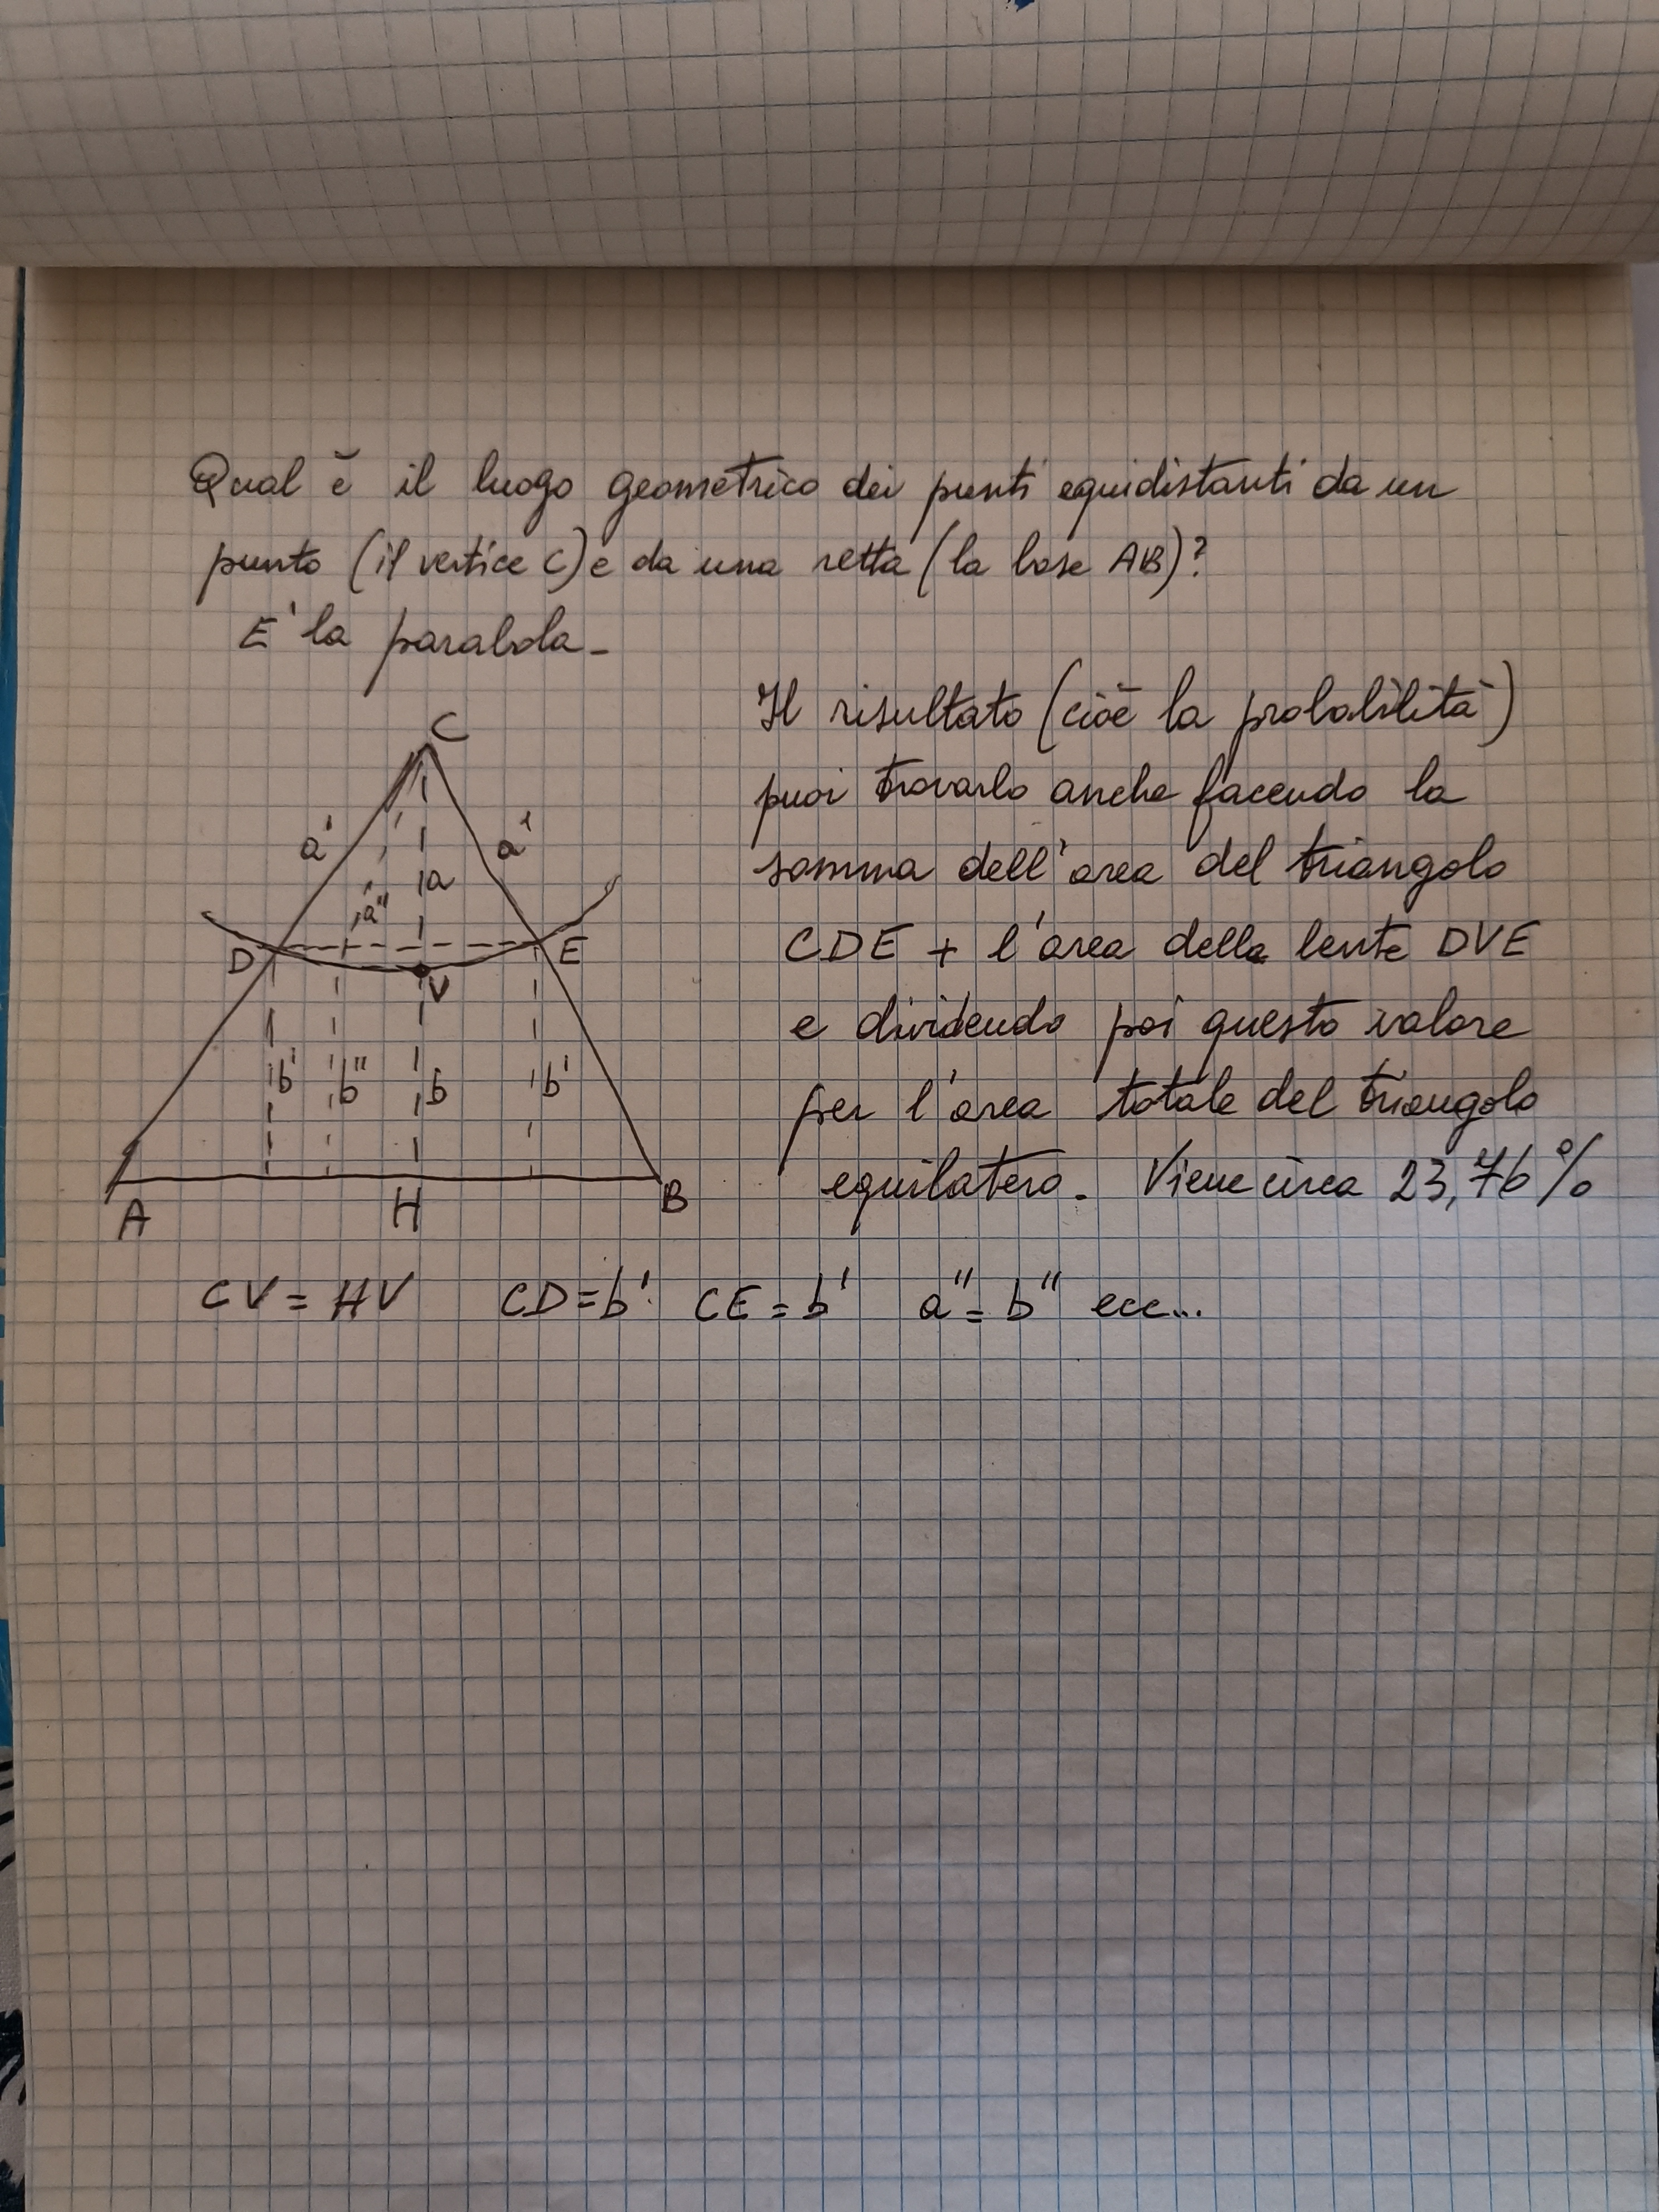 Qual è il luogo geometrico dei punti equidistanti da un
punto (il vertice C) e da una retta (la base AB)?
E' la parabola -
Il risultato (cioè la probabilità)
puoi trovarlo anche facendo la
somma dell'area del triangolo
CDE + l'area della lente DVE
e dividendo poi questo valore
per l'area totale del triangolo
equilatero. Viene circa 23,76%
C
a' a'
a
a"
D E
V
b' b" b b'
A H B
CV = HV CD = b' CE = b' a" = b" ecc...